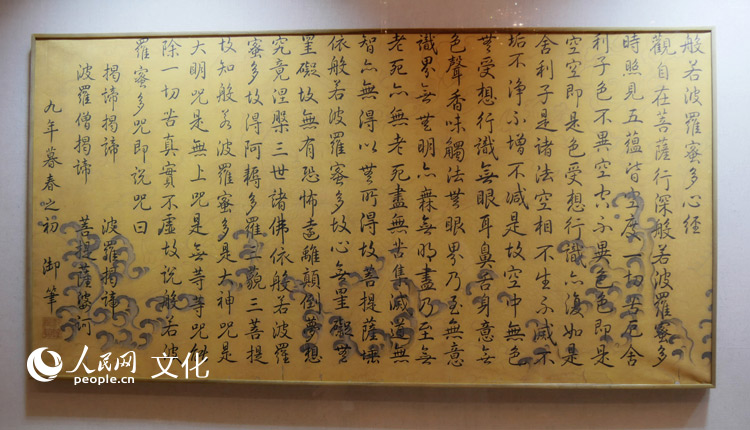 般若波羅蜜多心經
觀自在菩薩行深般若波羅蜜多
時照見五蘊皆空度一切苦厄舍
利子色不異空空不異色色即是
空空即是色受想行識亦復如是
舍利子是諸法空相不生不滅不
垢不淨不增不減是故空中無色
無受想行識無眼耳鼻舌身意無
色聲香味觸法無眼界乃至無意
識界無無明亦無無明盡乃至無
老死亦無老死盡無苦集滅道無
智亦無得以無所得故菩提薩埵
依般若波羅蜜多故心無罣礙無
罣礙故無有恐怖遠離顛倒夢想
究竟涅槃三世諸佛依般若波羅
蜜多故得阿耨多羅三藐三菩提
故知般若波羅蜜多是大神咒是
大明咒是無上咒是無等等咒能
除一切苦真實不虛故說般若波
羅蜜多咒即說咒曰
揭諦揭諦 波羅揭諦
波羅僧揭諦 菩提薩婆訶
九年暮春之初 御筆
人民网 文化
people.cn